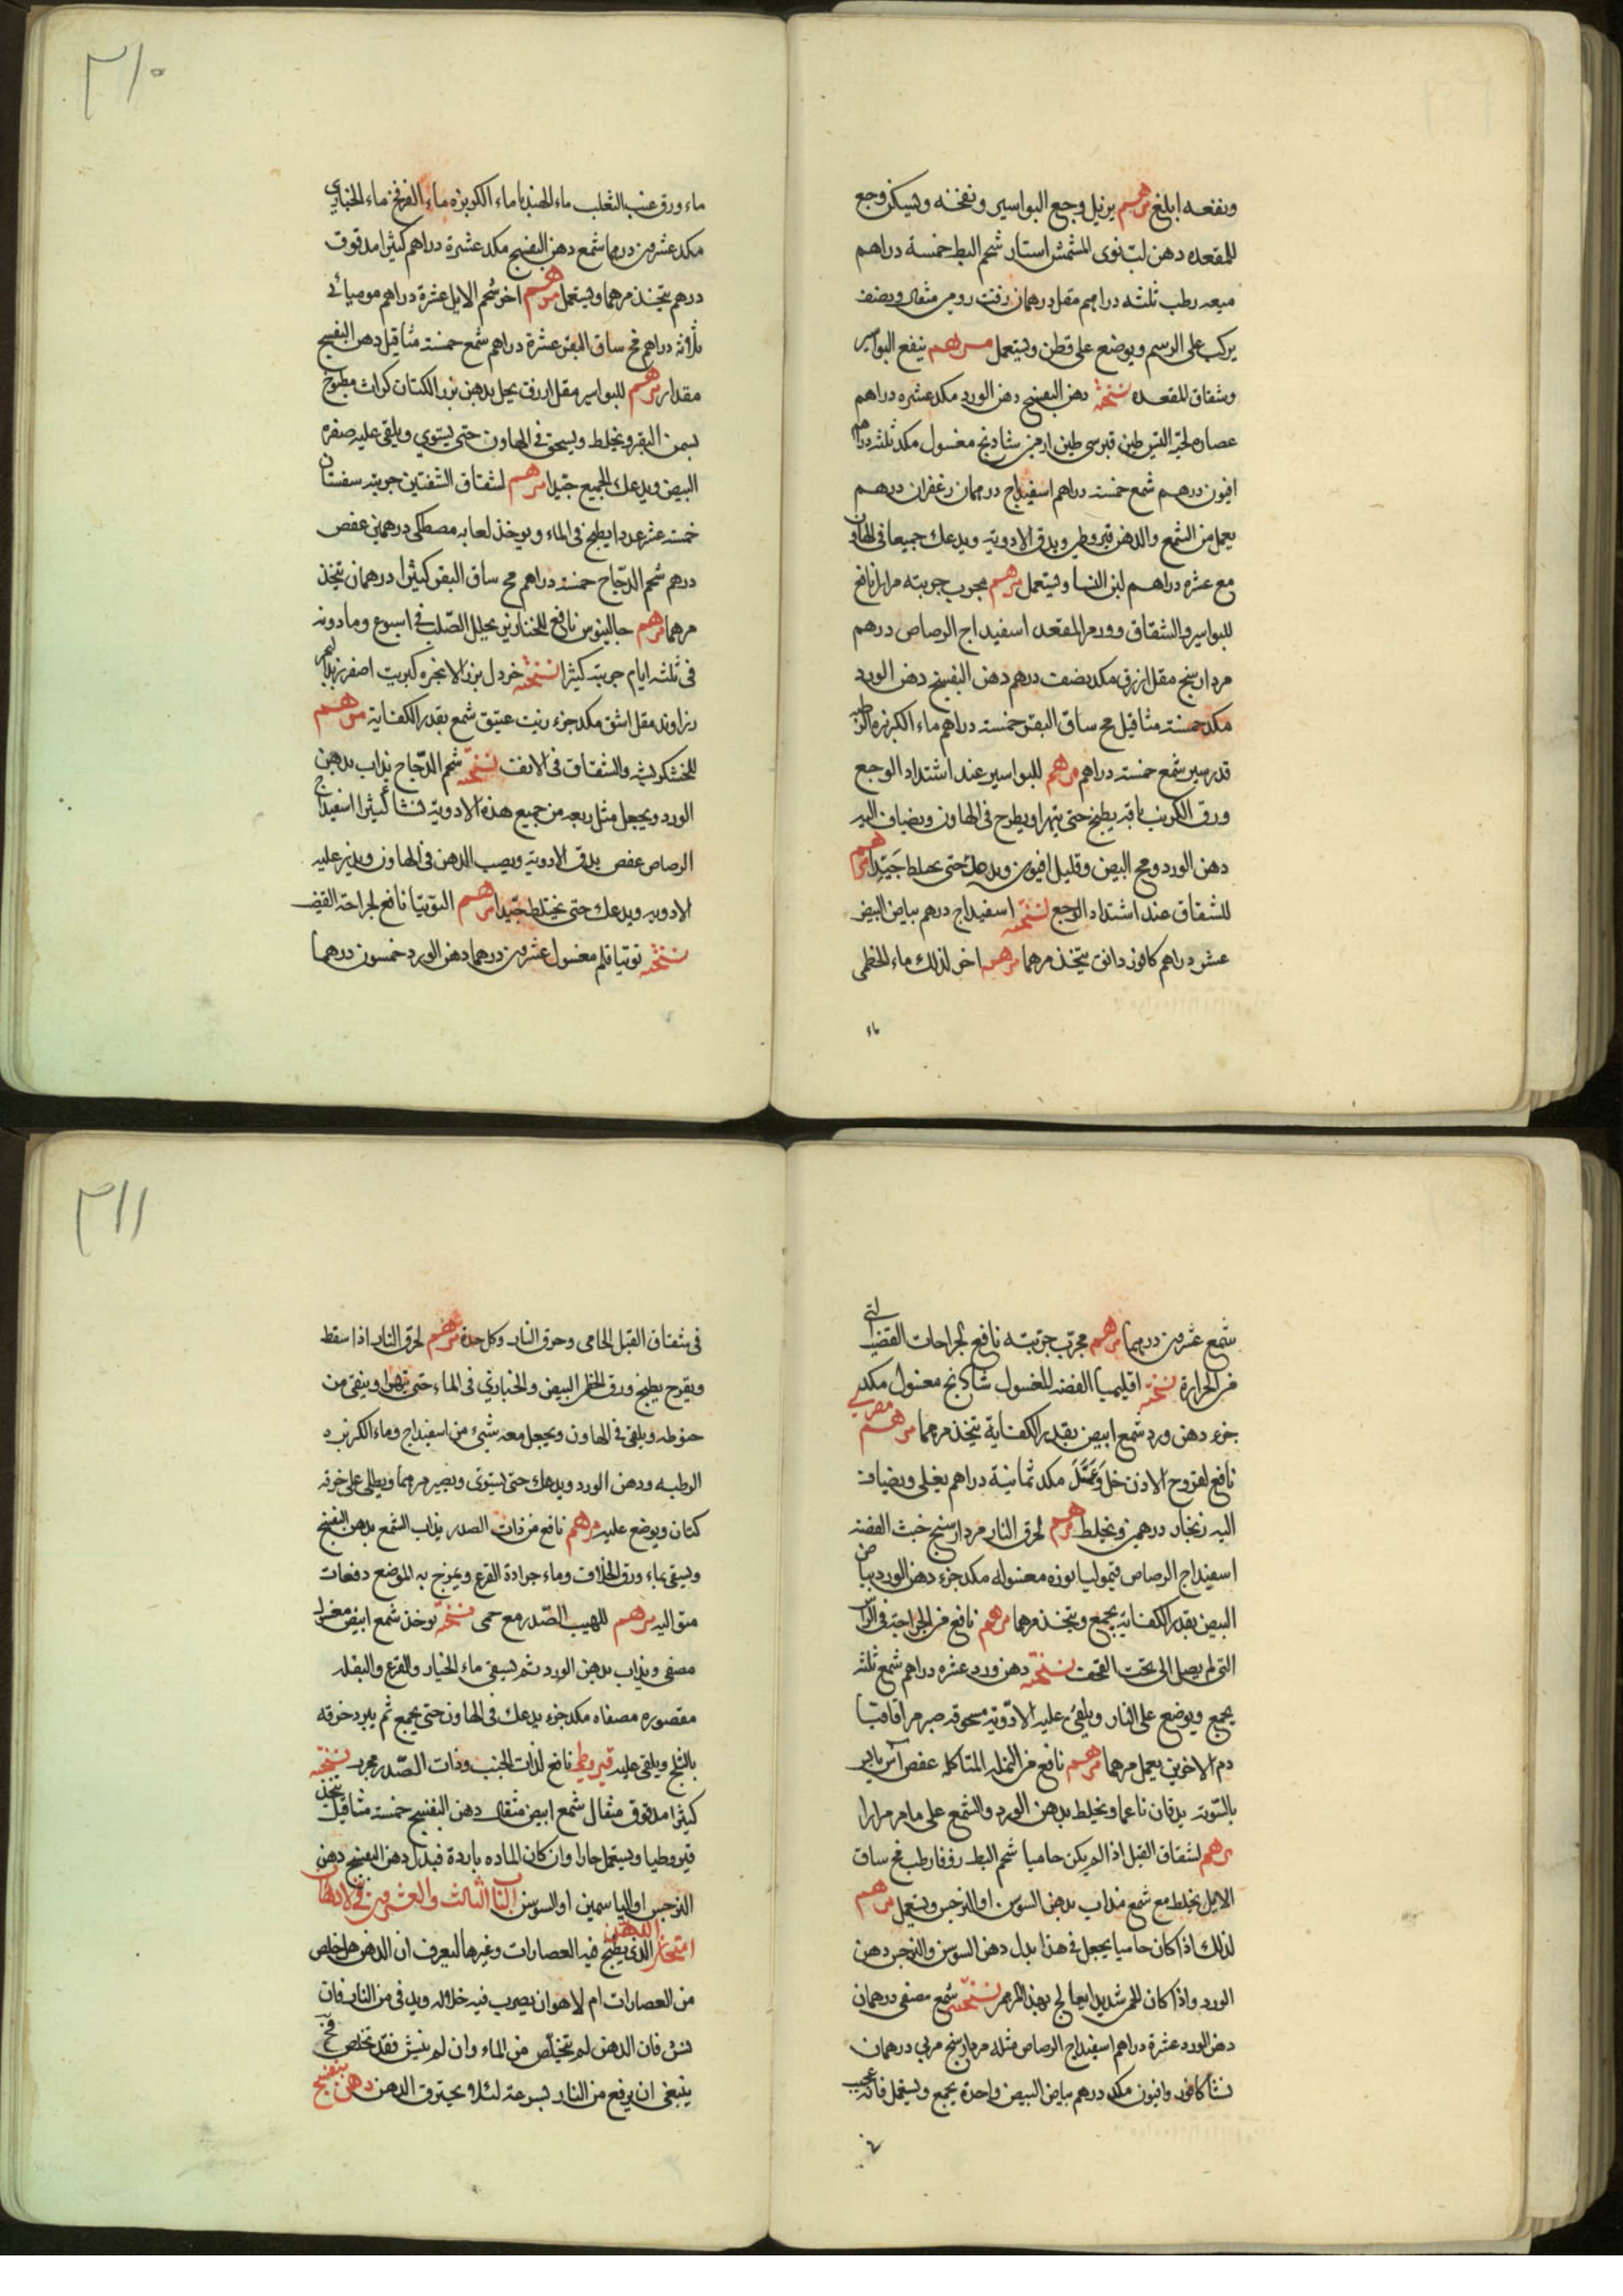 ونفعه ابلغ مرهم يزيل وجع البواسير ونفخه ويسكن وجع
المقعده دهن لب نوى المشمش استار شحم البط خمسة دراهم
ميعه رطب ثلثه دراهم مقل درهمان زفت رومى مثقال ونصف
يركب على الرسم ويوضع على قطن ويستعمل مرهم ينفع البواسير
وشقاق المقعده نسخته دهن البنفسج دهن الورد مكد عشره دراهم
عصاره لحية التيس طين قبرسى طين ارمنى شادنج مغسول مكد ثلثه دراهم
افيون درهم شمع خمسة دراهم اسفيداج درهمان زعفران درهم
يعمل من الشمع والدهن قيروطى ويدق الادوية ويدعك جميعا فى الهاون
مع عشره دراهم لبن النسا ويستعمل مرهم مجرب جربته مرارا نافع
للبواسير والشقاق وورم المقعد اسفيداج الرصاص درهم
مرداسنج مقل ازرق مكد نصف درهم دهن البنفسج دهن الورد
مكد خمسة مثاقيل مخ ساق البقر خمسة دراهم ماء الكزبره الرطبه
قدر يسير شمع خمسة دراهم مرهم للبواسير عند اشتداد الوجع
ورق الكرنب باقة يطبخ حتى يتهرا ويطرح فى الهاون ويضاف اليه
دهن الورد ومح البيض وقليل افيون ويدعك حتى يختلط جَيّدا مرهم
للشقاق عند اشتداد الوجع نسخته اسفيداج درهم بياض البيض
عشر دراهم كافور دانق يتخذ مرهما مرهم اخر لذلك ماء الخطمى
ماء
٣١٠
ماء ورق عنب الثعلب ماء الهندبا ماء الكزبره ماء الفرفخ ماء الخبازى
مكد عشرين درهما شمع دهن البنفسج مكد عشرة دراهم كثيرا مدقوق
درهم يتخذ مرهما ويستعمل مرهم اخر شحم الايل عشرة دراهم موميائى
ثلاثة دراهم مخ ساق البقر عشرة دراهم شمع خمسة مثاقيل دهن البنفسج
مقدار مرهم للبواسير مقل ازرق يحل بدهن بزر الكتان كراث مطبوخ
بسمن البقر ويخلط ويسحق فى الهاون حتى يستوي ويلقى عليه صفره
البيض ويدعك الجميع جيّدا مرهم لشقاق الشفتين جربته سفستان
خمسة عشر عددا يطبخ فى الماء ويوخذ لعابه مصطكى درهمين عفص
درهم شحم الدّجاج خمسة دراهم مخ ساق البقر كثيرا درهمان يتخذ
مرهما مرهم جالينوس نافع للخنازير يحلل الصّلب فى اسبوع وما دونه
فى ثلثه ايام جربته كثيرا نسخته خردل بزر الانجره كبريت اصفر زبد البحر
زراوند مقل اشق مكد جزء زيت عتيق شمع بقدر الكفاية مرهم
للخشكريشه والشقاق فى الانف نسخته شحم الدّجاج يذاب بدهن
الورد ويجعل مثل ربعه من جميع هذه الادوية نشا كثيرا اسفيداج
الرصاص عفص يدق الادوية ويصب الدهن فى الهاون ويذر عليه
الادويه ويدعك حتى يختلط جيّدا مرهم التوتيا نافع لجراحة القضيب
نسخته توتيا قلم مغسول عشرين درهما دهن الورد خمسون درهما
شمع عشرين درهما مرهم مجرّب جربته نافع لجراحات القضيب التى
من الحرارة نسخته اقليميا الفضه المغسول شادنج مغسول مكد
جزء دهن ورد شمع ابيض بقدر الكفاية يتخذ مرهما مرهم مصرى
نافع لقروح الاذن خل وَعَسَل مكد ثمانية دراهم يغلى ويضاف
اليه زنجار درهمين ويخلط مرهم لحرق النار مرداسنج خبث الفضة
اسفيداج الرصاص قيموليا نوره مغسوله مكد جزء دهن الورد بياض
البيض بقدر الكفاية يجمع ويتخذ مرهما مرهم نافع من الجراحة فى الراس
التى لم يصل الى تحت القحف نسخته دهن ورد عشره دراهم شمع ثلثه
يجمع ويوضع على النار ويلقى عليه الادوية مسحوقه صبر مر اقاقيا
دم الاخوين يعمل مرهما مرهم نافع من النمله المتاكله عفص آس يابس
بالسّويّه يدقان ناعما ويخلط بدهن الورد والشمع على ما مر مرارا
مرهم لشقاق القبل اذا لم يكن حاميا شحم البط زوفا رطب مخ ساق
الايل يخلط مع شمع مذاب بدهن السوسن او النرجس ويستعمل مرهم
لذلك اذا كان حاميا يجعل فى هذا بدل دهن السوسن والنرجس دهن
الورد واذا كان الحر شديدا يعالج بهذا المرهم نسخته شمع مصفى درهمان
دهن الورد عشرة دراهم اسفيداج الرصاص مثله مرداسنج مربى درهمان
نشا كافور وافيون مكد درهم بياض البيض واحدة يجمع ويستعمل فانه عجيب
فى
٣١١
فى شقاق القبل الحامى وحرق النار وكل حدة مرهم لحرق النار اذا سقط
وتقرح يطبخ ورق الخطمى البيض والخبازي فى الماء حتى يتهرا وينقى من
خيوطه ويلقى فى الهاون ويجعل معه شىء من اسفيداج وماء الكزبره
الرطبه ودهن الورد ويدعك حتى يستوى ويصير مرهما ويطلى على خرقه
كتان ويوضع عليه مرهم نافع من ذات الصدر يذاب الشمع بدهن البنفسج
ويسقى بماء ورق الخلاف وماء جرادة القرع ويمرخ به الموضع دفعات
متواليه مرهم للهيب الصّدر مع حمى نسخته يوخذ شمع ابيض مغسول
مصفى ويذاب بدهن الورد ثم يسقى ماء الخيار والقرع والبقله
مقصوره مصفاه مكد جزء يدعك فى الهاون حتى يجمع ثم يبرد خرقه
بالثلج ويلقى عليه قيروطى نافع لذات الجنب وذات الصّدر مجرب نسخته
كثيرا مدقوق مثقال شمع ابيض مثقال دهن البنفسج خمسة مثاقيل يتخذ
قيروطيا ويستعمل حارا وان كان الماده باردة فبدل دهن البنفسج دهن
النرجس او الياسمين او السوسن الباب الثالث والعشرين فى الادهان
امتحان الدهن الذى يطبخ فيه العصارات وغيرها ليعرف ان الدهن هل خلص
من العصارات ام لا هو ان يصوب فيه خلاله ويدنى من النار فان
نش فان الدهن لم يتخلّص من الماء وان لم ينش فقد تخلص فح
ينبغى ان يرفع من النار بسرعة لئلا يحترق الدهن دهن بنفسج